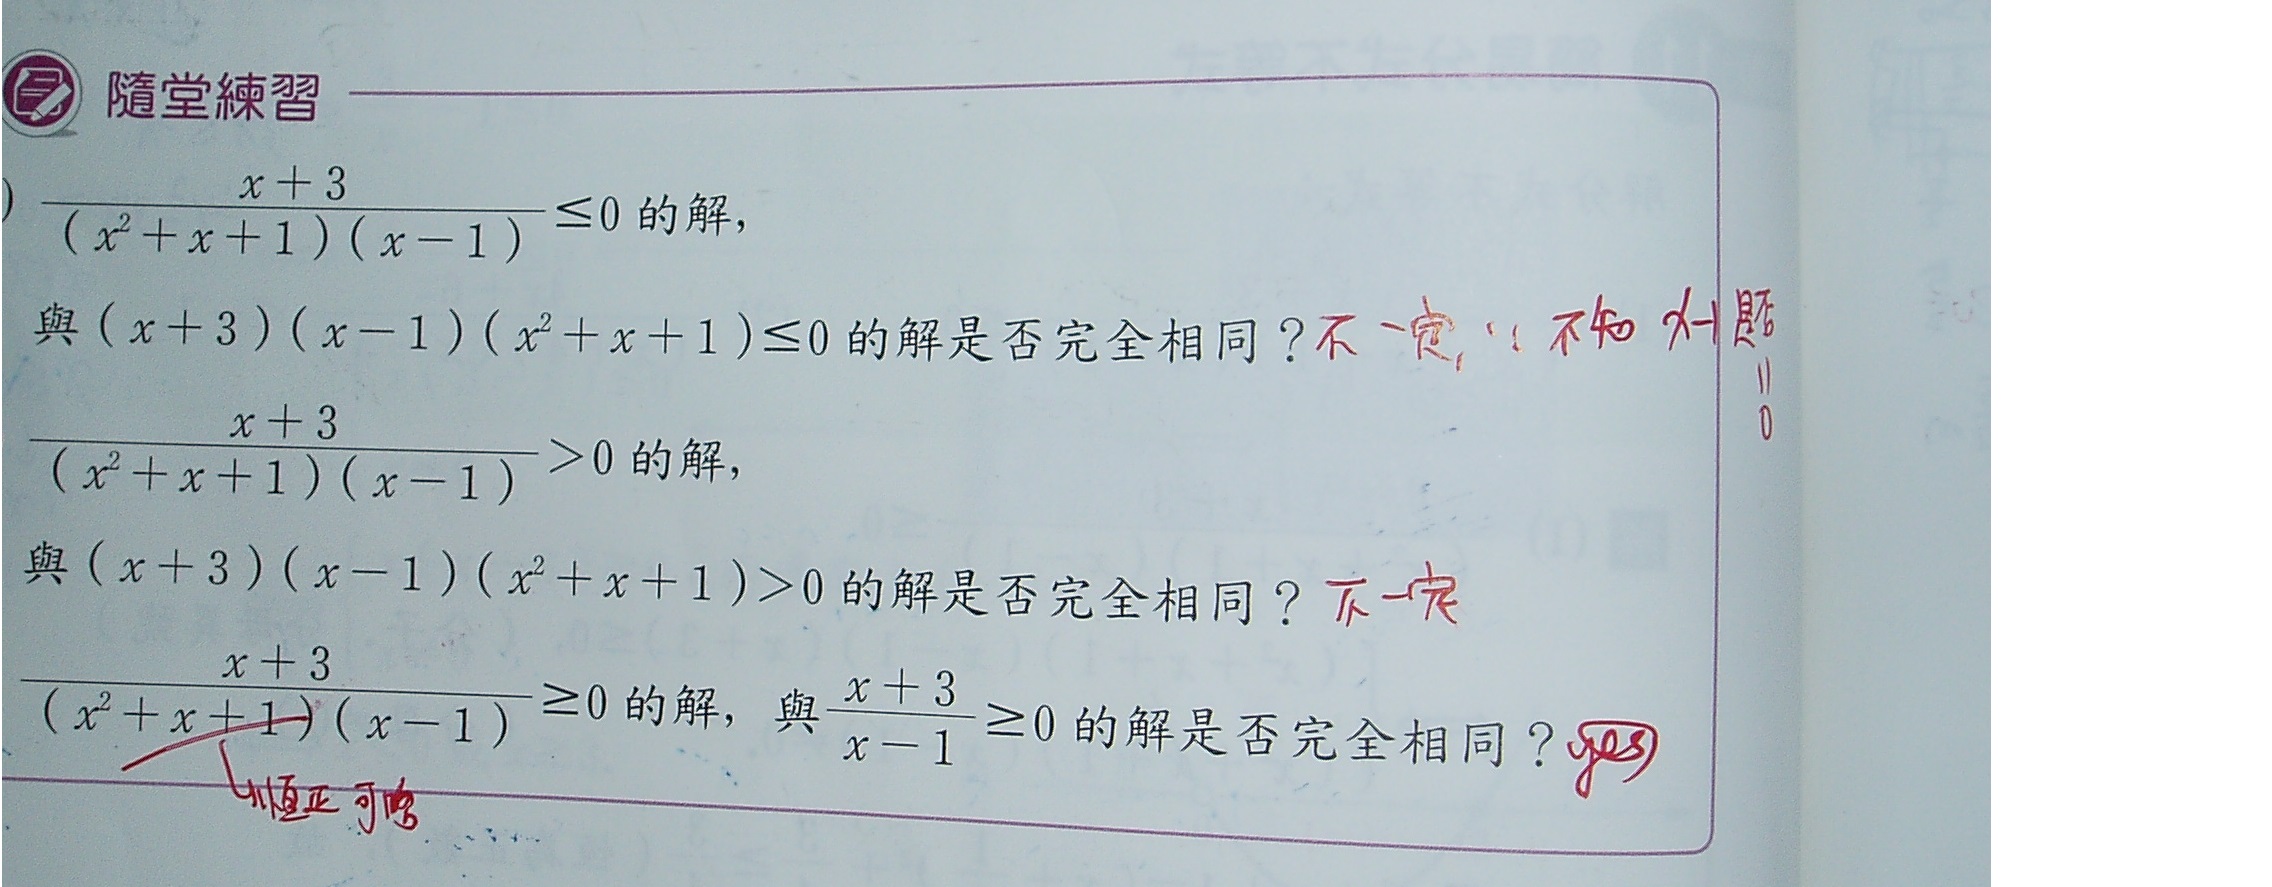 隨堂練習
) \frac{x+3}{(x²+x+1)(x-1)}≤0 的解,
與(x+3)(x-1)(x²+x+1)≤0 的解是否完全相同?不一定, ∵ 不知 x-1 是否
=0
\frac{x+3}{(x²+x+1)(x-1)}>0 的解,
與(x+3)(x-1)(x²+x+1)>0 的解是否完全相同?不一定
\frac{x+3}{(x²+x+1)(x-1)}≥0 的解, 與\frac{x+3}{x-1}≥0 的解是否完全相同?yes
恒正 可略